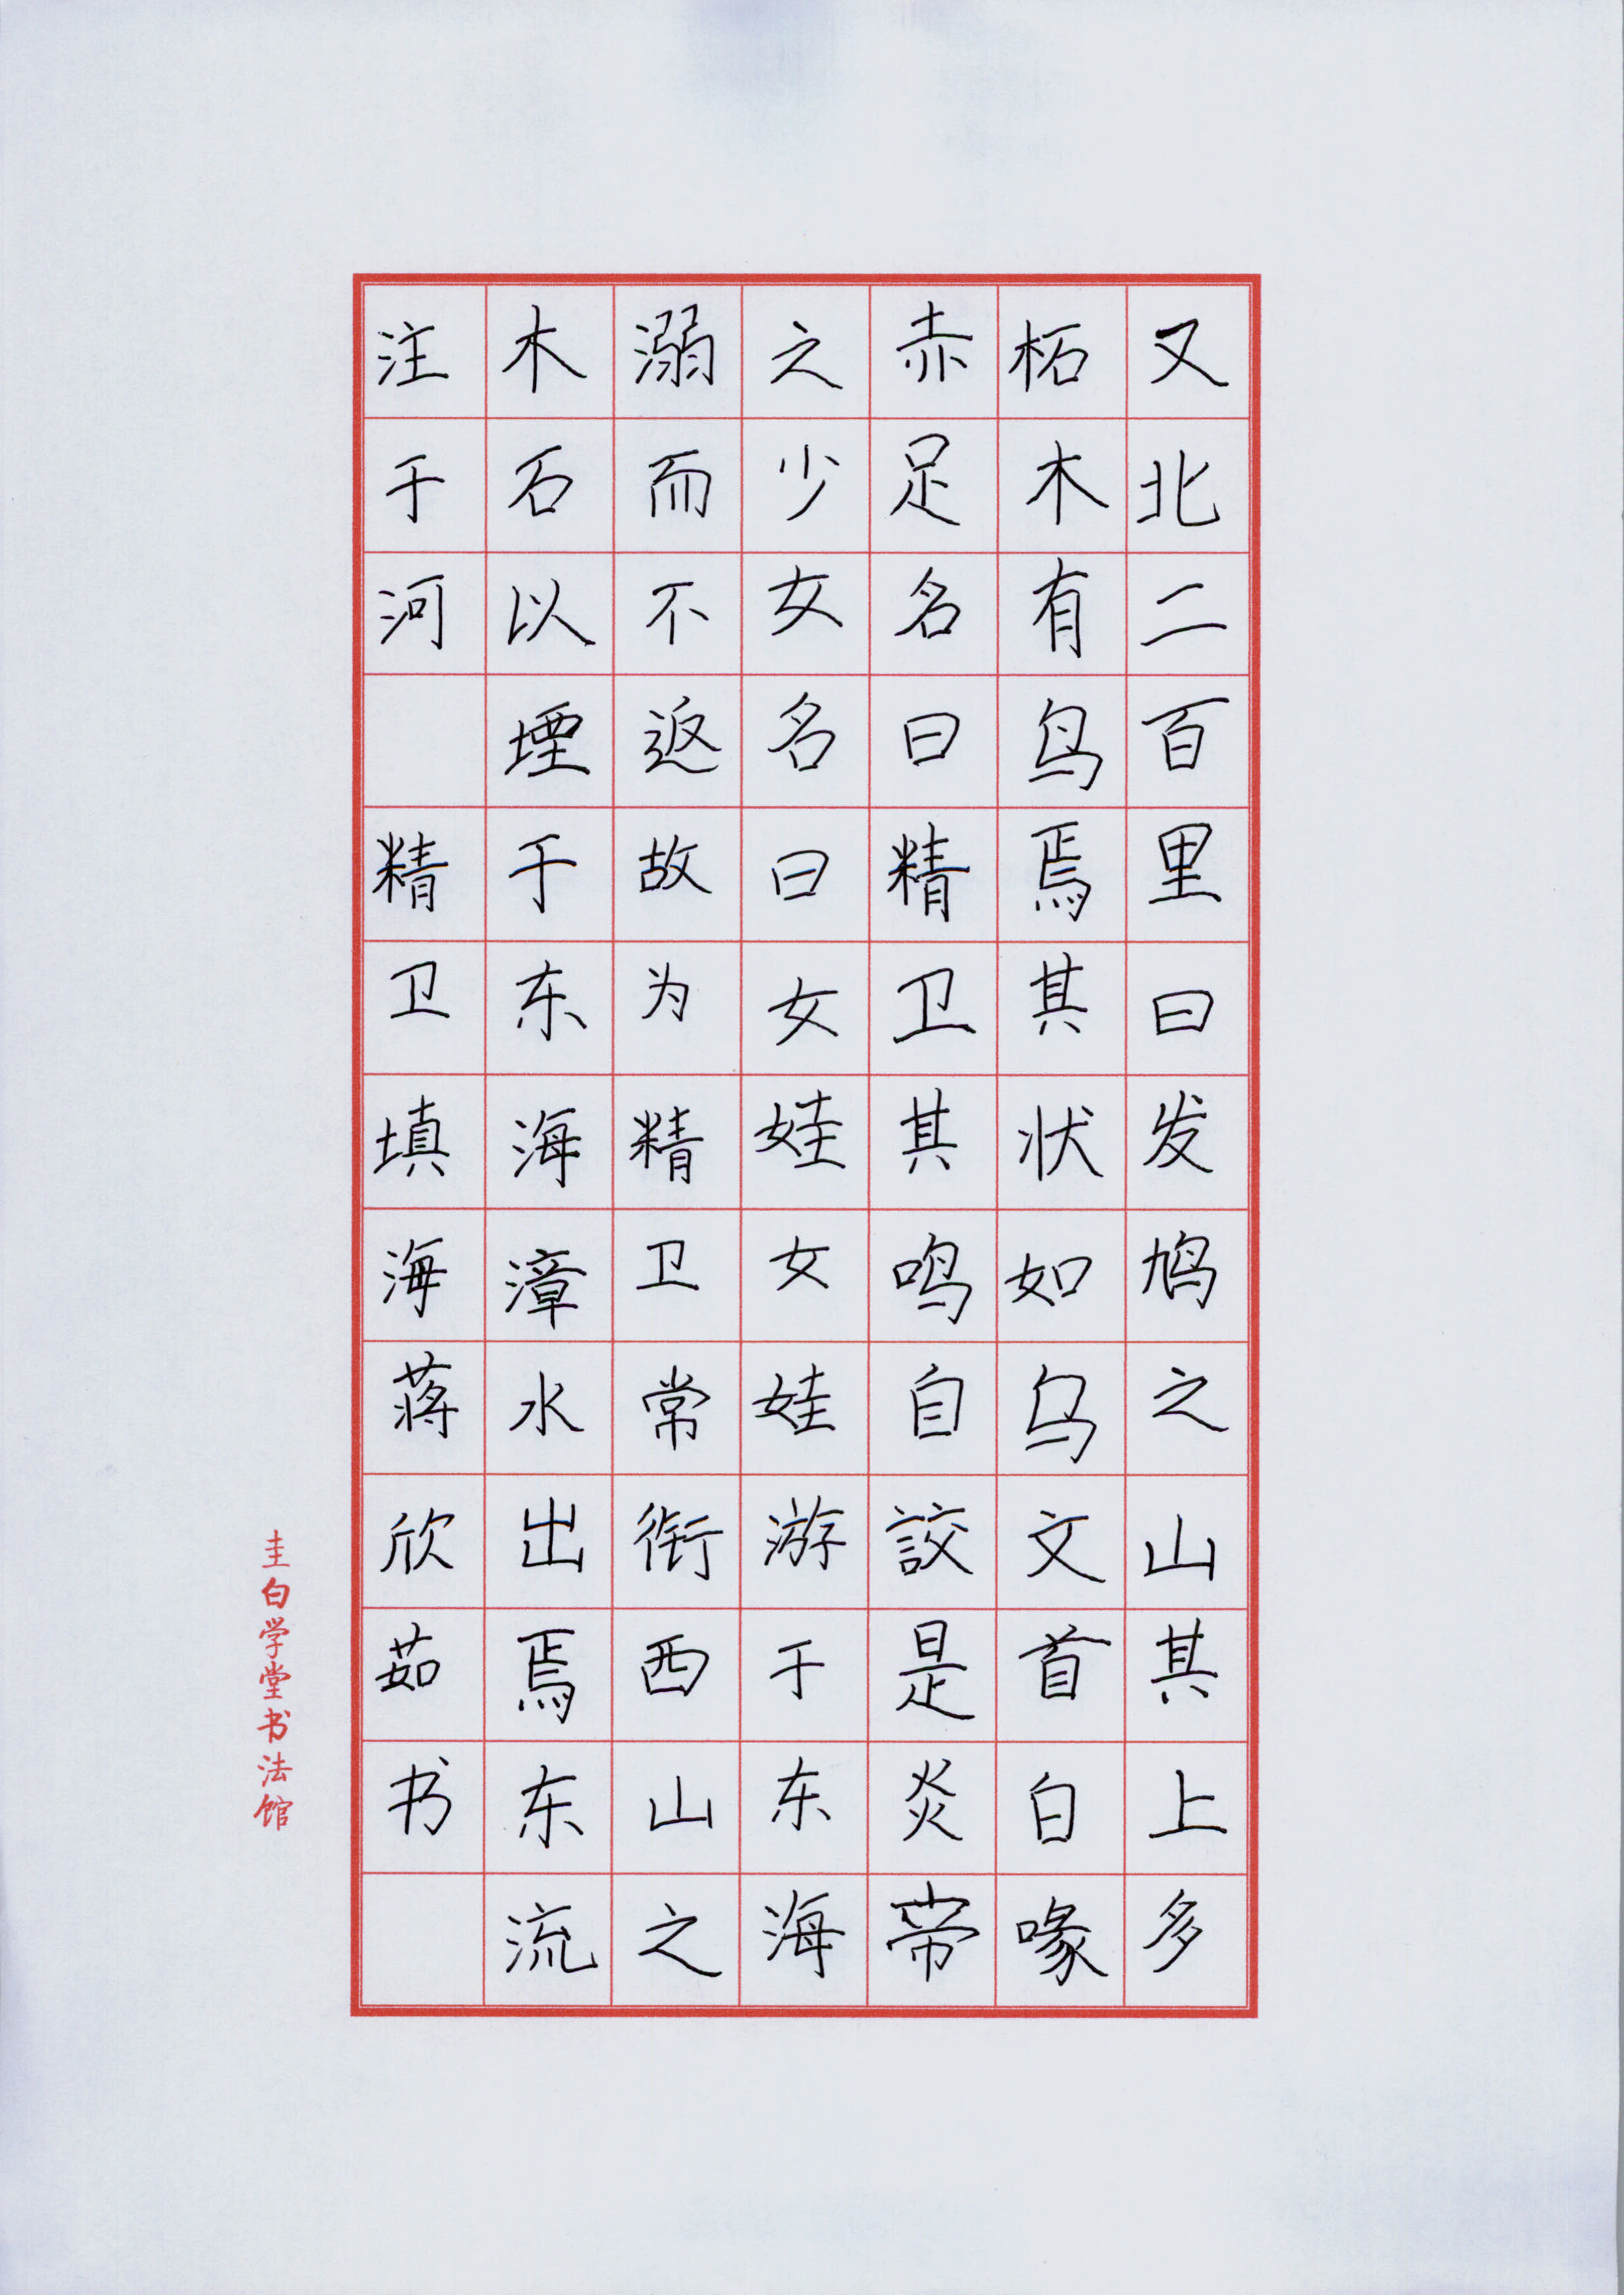 又北二百里曰发鸠之山其上多
柘木有鸟焉其状如乌文首白喙
赤足名曰精卫其鸣自詨是炎帝
之少女名曰女娃女娃游于东海
溺而不返故为精卫常衔西山之
木石以堙于东海漳水出焉东流
注于河 精卫填海蒋欣茹书
圭白学堂书法馆